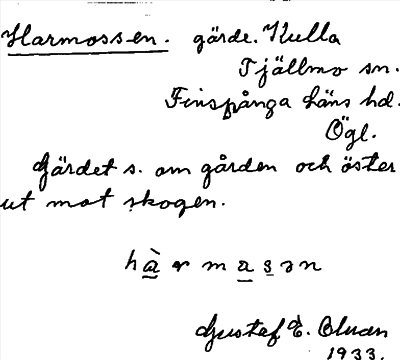 Harmossen. gärde. Kulla
Tjällmo sn.
Finspånga läns hd.
Ögl.
Gärdet s. om gården och öster
ut mot skogen.
hàrmasən
Gustaf E. Olman
1933.